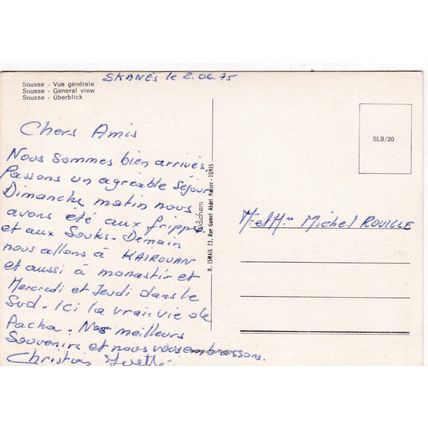 SKANÈS le 2.06.75
Sousse - Vue générale
Sousse - General view
Sousse - Überblick
Chers Amis
Nous sommes bien arrivés
Passons un agréable séjour
Dimanche matin nous
avons été aux frippes
et aux Souks. Demain
nous allons à KAIROUAN
et aussi à monastir et
Mercredi et Jeudi dans le
Sud. Ici la vraie vie de
Pacha. Nos meilleurs
Souvenirs et nous vous embrassons.
Christian Yvette
R. ISMAIL 23, Rue Gamel Abdel Naker - TUNIS
SLB/20
M. et Mme Michel ROUILLE